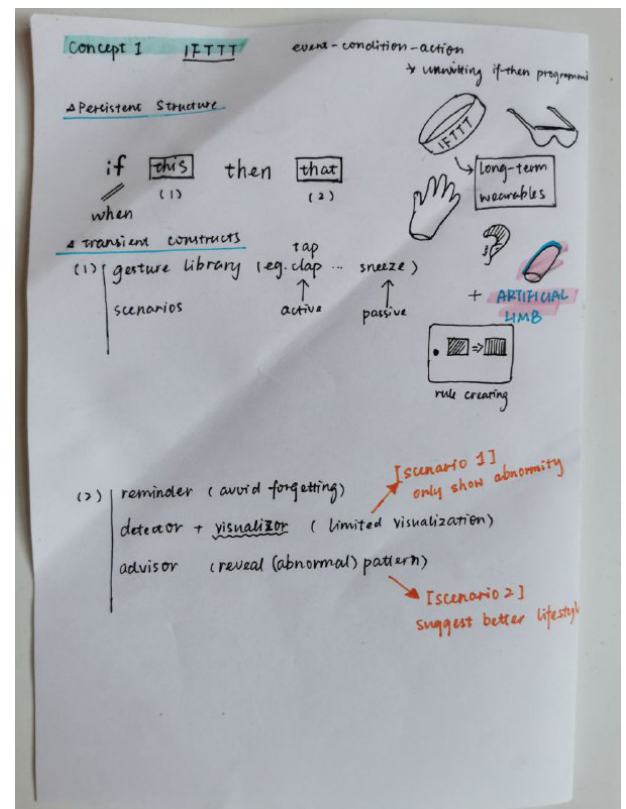 Concept I IFTTT event-condition-action
unwitting if-then programmi
△Persistent Structure
IFTTT
if this then that
(1) (2)
when
long-term
wearables
△ transient constructs
tap
(1) gesture library (eg. clap ... sneeze)
scenarios
active passive
+ ARTIFICIAL
LIMB
=>
rule creating
[scenario 1]
only show abnormity
(2) reminder (avoid forgetting)
detector + visualizor (limited visualization)
advisor (reveal (abnormal) pattern)
[scenario 2]
suggest better lifestyl